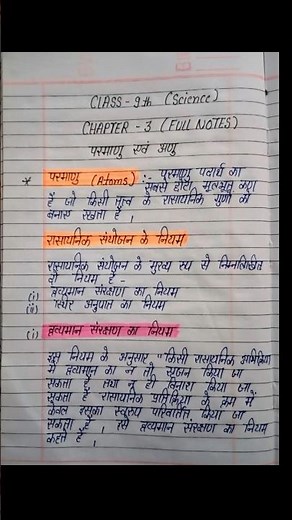 CLASS - 9th (Science)
CHAPTER - 3 (FULL NOTES)
परमाणु एवं अणु
* परमाणु (Atoms) :- परमाणु पदार्थ का
सबसे छोटा मूलभूत कण
है जो किसी तत्व के रासायनिक गुणों को
बनाए रखता है ।
रासायनिक संयोजन के नियम
रासायनिक संयोजन के मुख्य रूप से निम्नलिखित
दो नियम है -
(i) द्रव्यमान संरक्षण का नियम
(ii) स्थिर अनुपात का नियम
(i) द्रव्यमान संरक्षण का नियम
इस नियम के अनुसार, "किसी रासायनिक अभिक्रिया
में द्रव्यमान का न तो सृजन किया जा
सकता है तथा न ही विनाश किया जा
सकता है रासायनिक प्रतिक्रिया के क्रम में
केवल इसका स्वरूप परिवर्तित किया जा
सकता है । इसे द्रव्यमान संरक्षण का नियम
कहते हैं ।